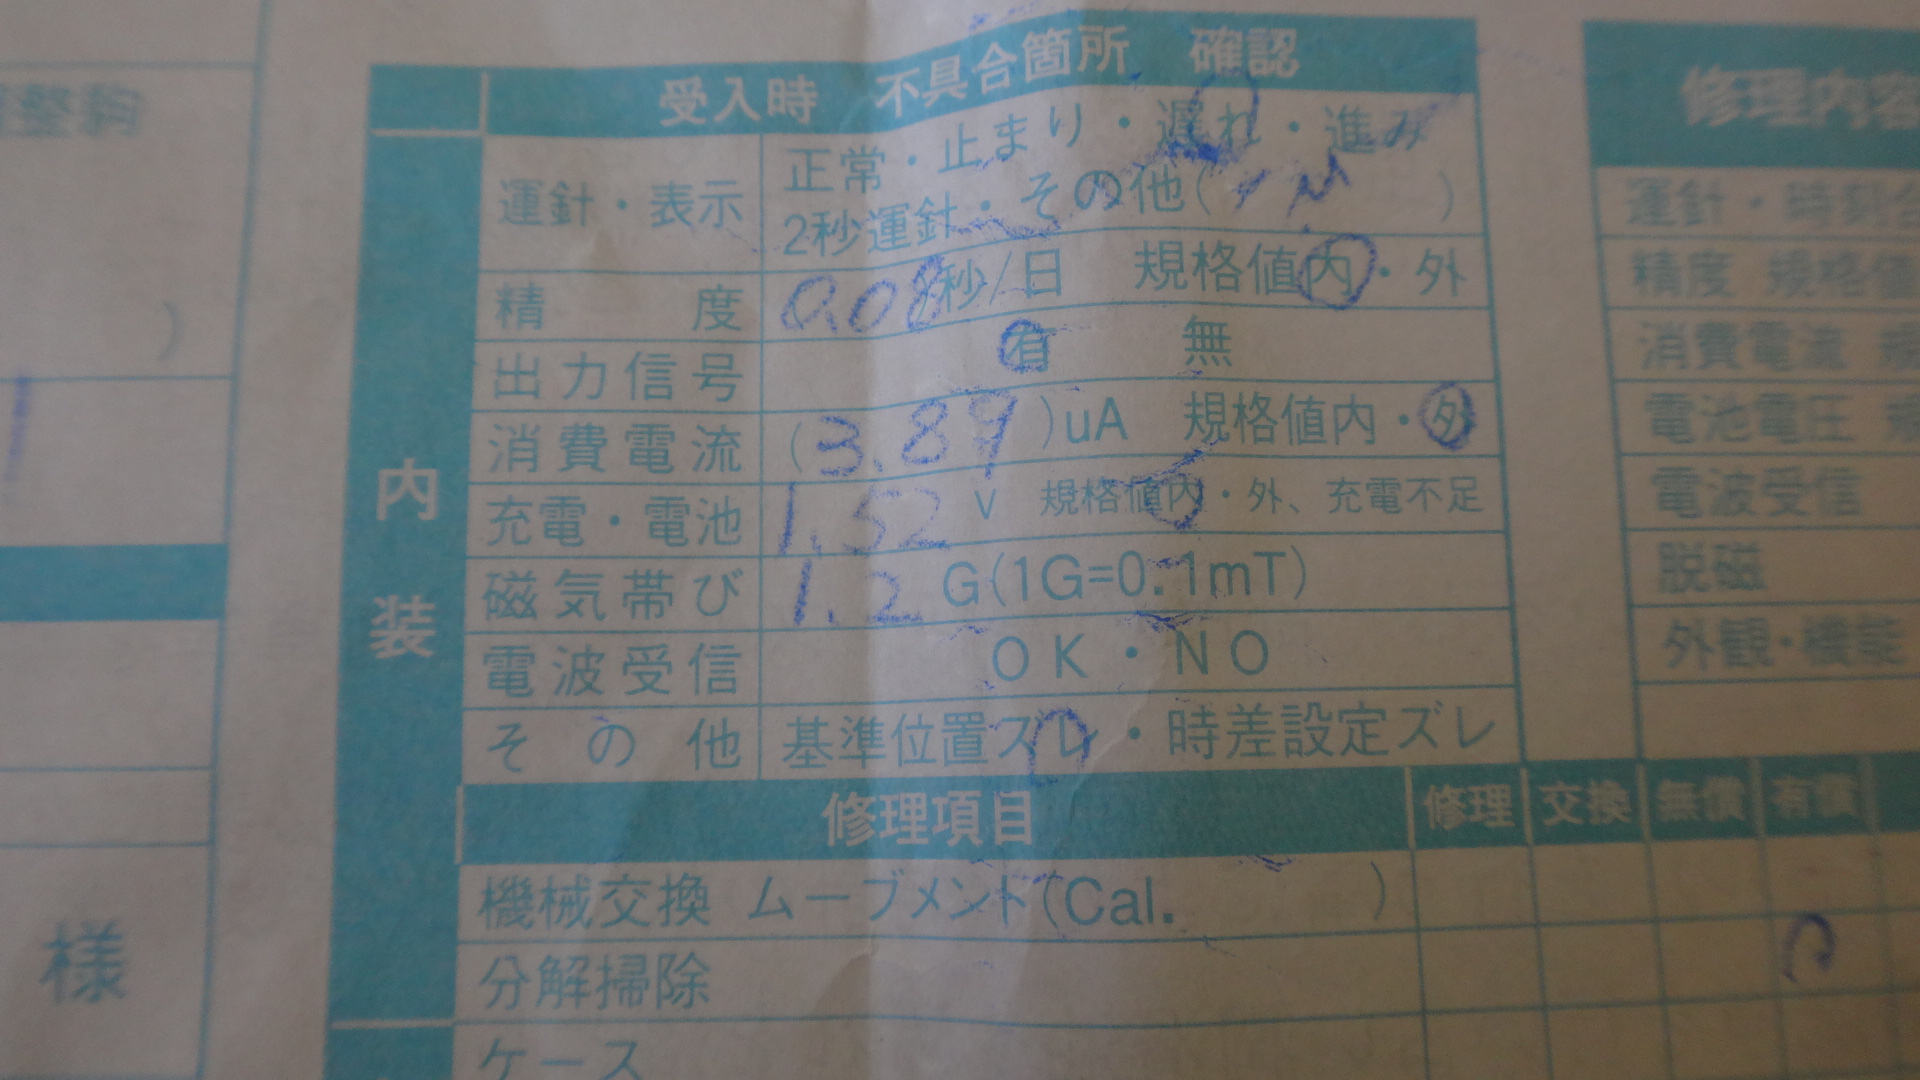 受入時 不具合箇所 確認
運針・表示 正常・止まり・遅れ・進み
2秒運針・その他( )
精度 0.08秒/日 規格値内・外
出力信号 有 無
消費電流 (3.89)uA 規格値内・外
充電・電池 1.52 V 規格値内・外、充電不足
磁気帯び 1.2 G(1G=0.1mT)
電波受信 OK・NO
その他 基準位置ズレ・時差設定ズレ
内装
修理項目 修理 交換 無償 有償
機械交換 ムーブメント(Cal. )
分解掃除
ケース
様
修理内容
運針・時刻
精度 規格値
消費電流
電池電圧
電波受信
脱磁
外観・機能